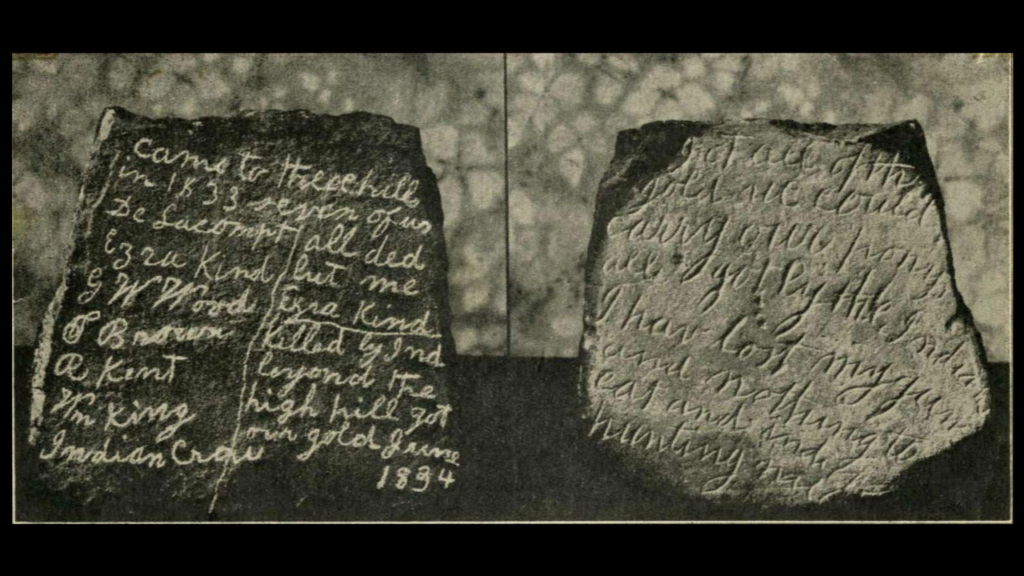 came to these hills
in 1833 seven of us
De Lacompt
Ezra Kind
G W Wood
T Brown
R Kent
Wm King
Indian Crow
all ded
but me
Ezra Kind
Killed by Ind
beyond the
high hill got
our gold June
1834
Got all of the
gold we could
carry our ponys
all got by the Indians
I hav lost my gun
and nothing to
eat and indians
hunting me